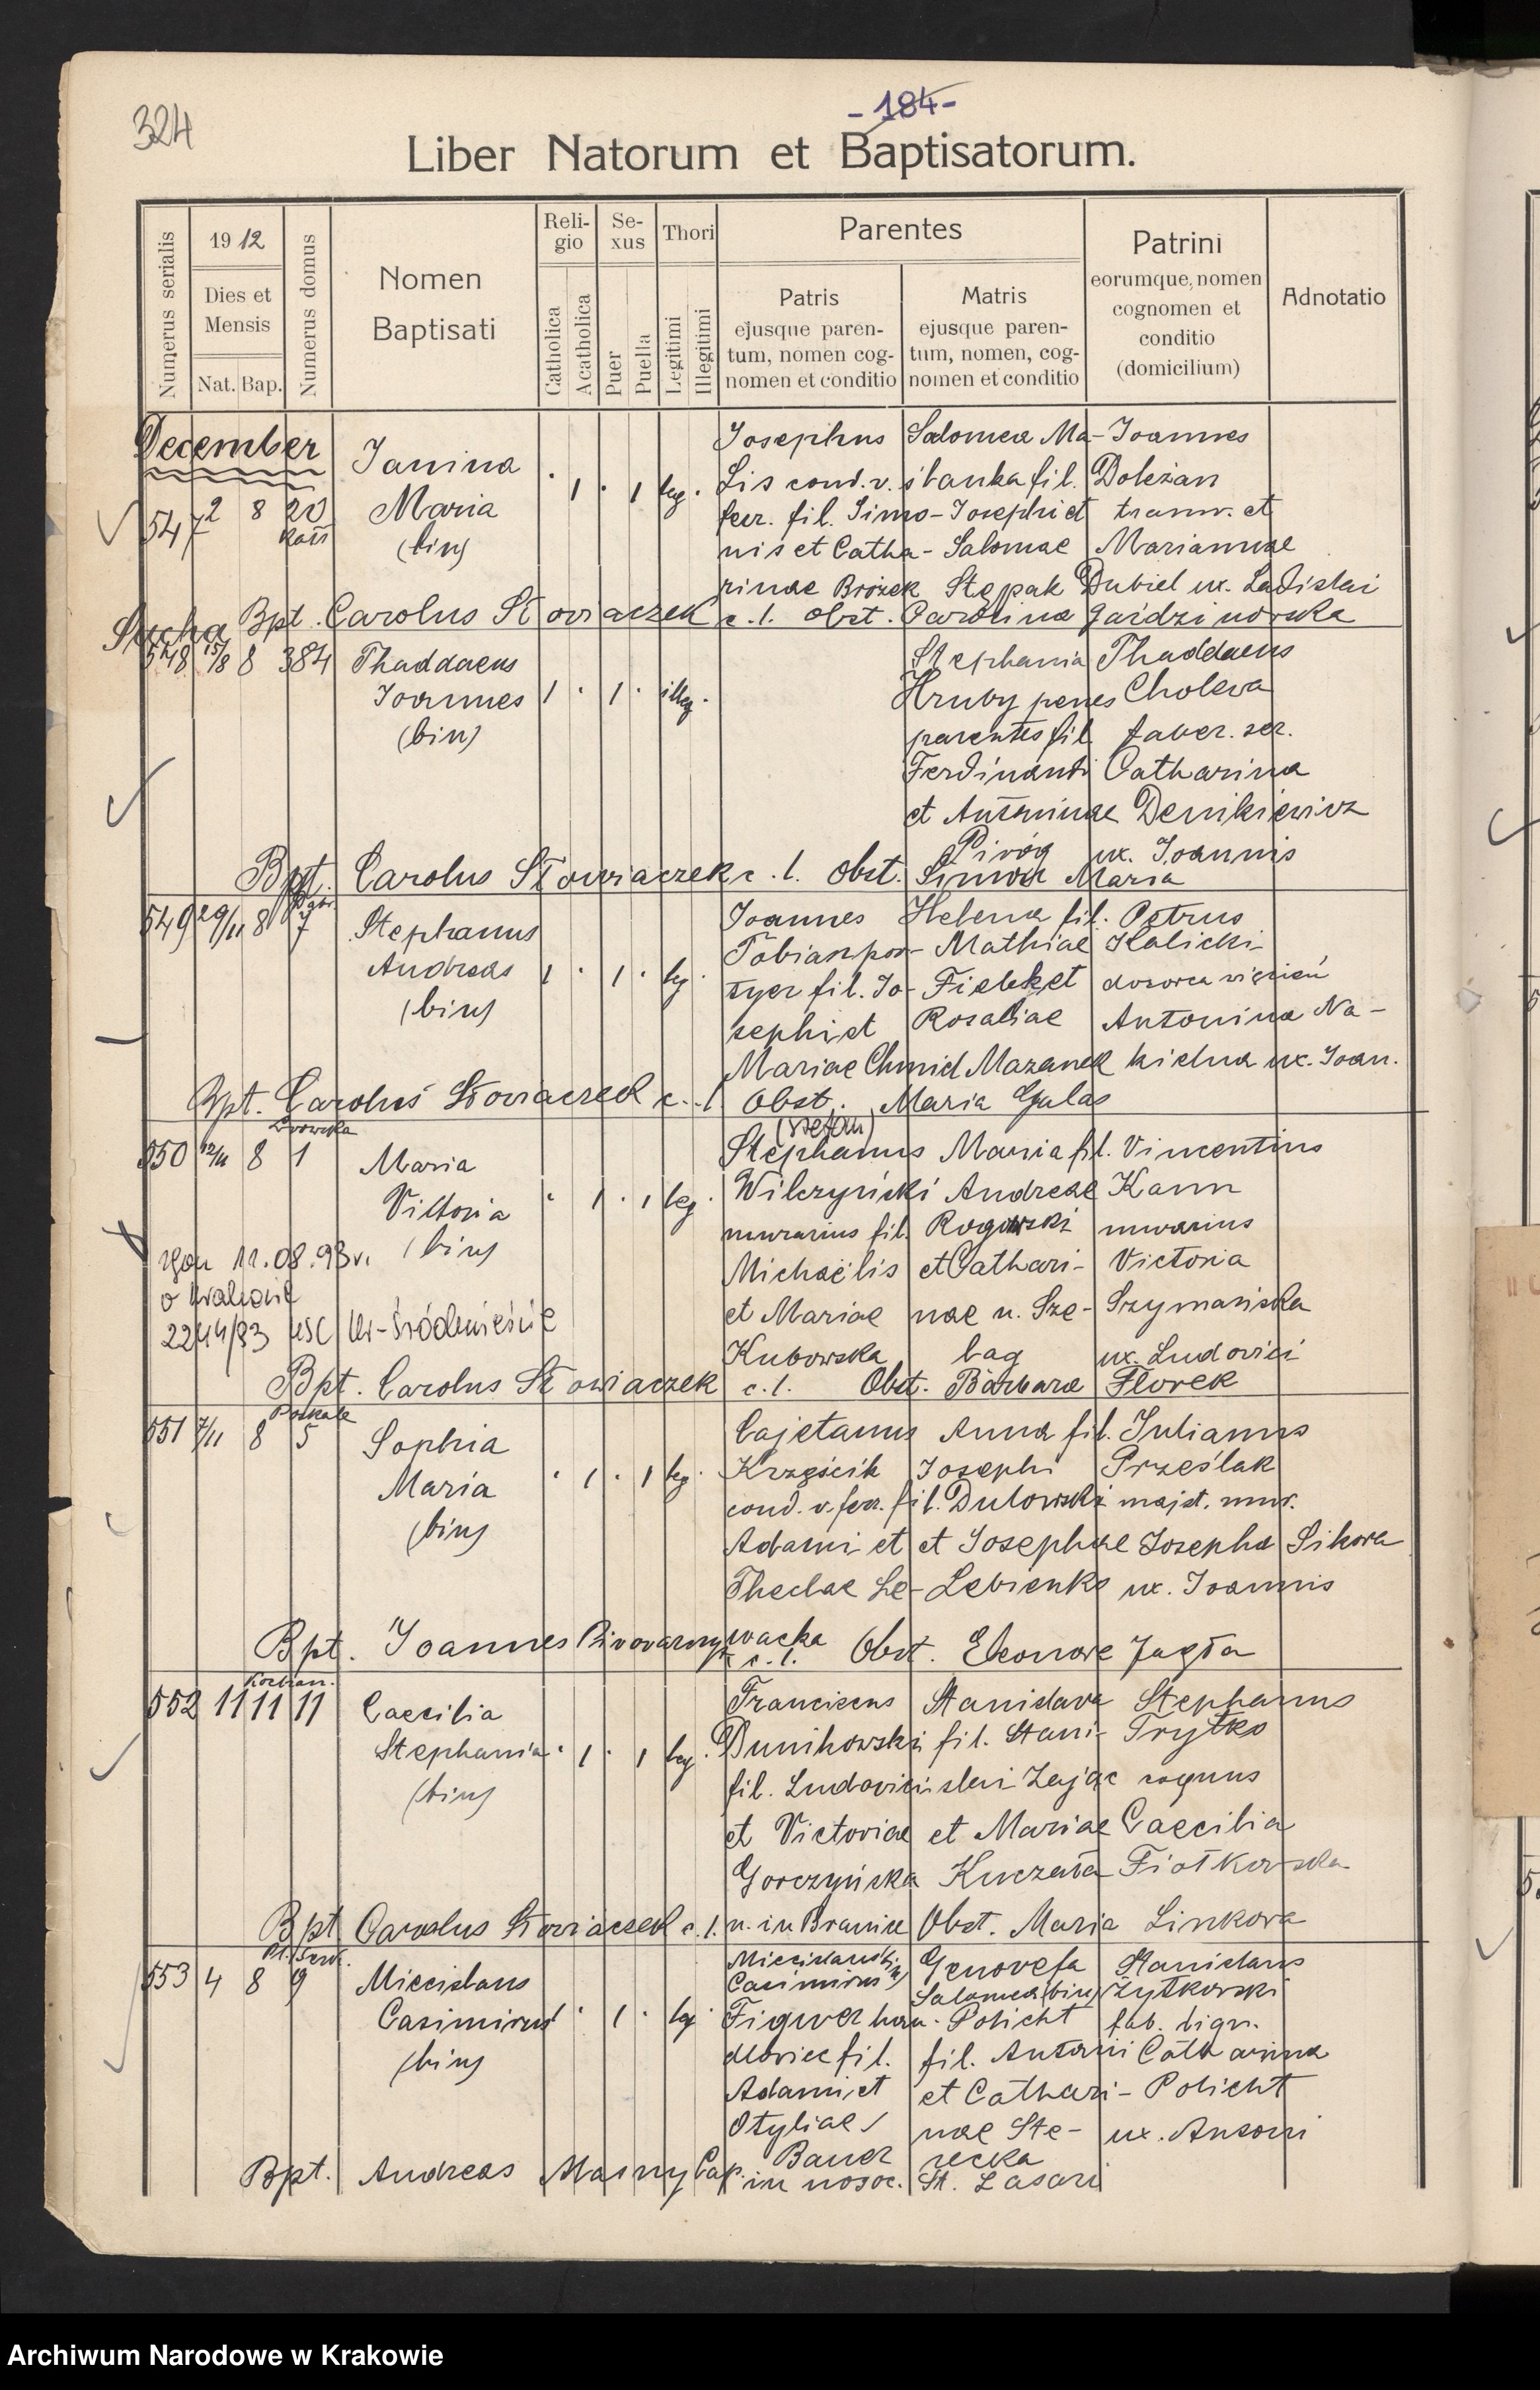 324
- 184 -
Liber Natorum et Baptisatorum.
Numerus serialis
1912
Dies et Mensis
Nat. Bap.
Numerus domus
Nomen Baptisati
Religio
Catholica
Acatholica
Sexus
Puer
Puella
Thori
Legitimi
Illegitimi
Parentes
Patris
ejusque paren-
tum, nomen cog-
nomen et conditio
Matris
ejusque paren-
tum, nomen, cog-
nomen et conditio
Patrini
eorumque, nomen
cognomen et
conditio
(domicilium)
Adnotatio
December
547 2 8 20
Janina
Maria
(bin)
1 1 leg.
Josephus
Lis cond. v.
ferr. fil. Simo-
nis et Catha-
rinae Brożek
Salomea Ma-
ślanka fil.
Josephi et
Salomae
Stępak
Joannes
Doleżan
tramv. et
Mariannae
Dubiel ux. Ladislai
Bpt. Carolus Słowiaczek c. l. obst. Carolina Gaździnowska
Sucha
548 15/8 8 384
Thaddaeus
Joannes
(bin)
1 1 illeg.
Stephania
Hruby penes
parentes fil.
Ferdinandi
et Antoninae
Piróg
Thaddaeus
Cholewa
faber. ser.
Catharina
Denikiewicz
ux. Joannis
Bpt. Carolus Słowiaczek c. l. Obst. Maria
549 29/11 8 7
Stephanus
Andreas
(bin)
1 1 leg.
Joannes
Tobiasz por-
tyer fil. Jo-
sephi et
Mariae Chmid
Helena fil.
Mathiae
Fiołek et
Rosaliae
Mazanek
Petrus
Kalicki
dozorca więzień
Antonina Na-
kielna ux. Joan.
Bpt. Carolus Słowiaczek c. l. Obst. Maria Gulas
550 12/11 8 Lwowska 1
Maria
Viktoria
(bin)
1 1 leg.
(Stefan)
Stephanus
Wilczyński
murarius fil.
Michaëlis
et Mariae
Kubowska
Maria fil.
Andreae
Rogowski
et Cathari-
nae n. Sze-
lag
Vincentius
Kann
murarius
Victoria
Szymańska
ux. Ludovici
zgon 11.08.93 r.
w Krakowie
2244/93 USC Kr-Śródmieście
Bpt. Carolus Słowiaczek c. l. Obst. Barbara Florek
551 7/11 8 5
Sophia
Maria
(bin)
1 1 leg.
Cajetanus
Krzęścik
cond. v. ferr. fil.
Adami et
Theclae Le-
wacka
Anna fil.
Josephi
Dulowski
et Josephae
Lebienko
Julianus
Prześlak
majst. mur.
Josepha Sikora
ux. Joannis
Bpt. Joannes Piwowarczyk c. l. Obst. Eleonore Jagła
552 11 11 11
Caecilia
Stephania
(bin)
1 1 leg.
Franciscus
Dunikowski
fil. Ludovici
et Victoriae
Gorczyńska
n. in Branice
Stanislava
fil. Stani-
slai Zając
et Mariae
Kuczała
Stephanus
Trytko
Caecilia
Fiołkowska
Bpt. Carolus Słowiaczek c. l. Obst. Maria Linkowa
553 4 8 9
Miecislaus
Casimirus
(bin)
1 1 leg.
Miecislaus
Casimirus
Figwer
fil.
Adami et
Otyliae
Bauer
Genovefa
Salomea (bin)
Policht
fil. Antonii
et Cathari-
nae Ste-
recka
Stanislaus
Żytkowski
fab. lign.
Catharina
Policht
ux. Antoni
Bpt. Andreas Masny Cap. in nosoc. St. Lasari
Archiwum Narodowe w Krakowie